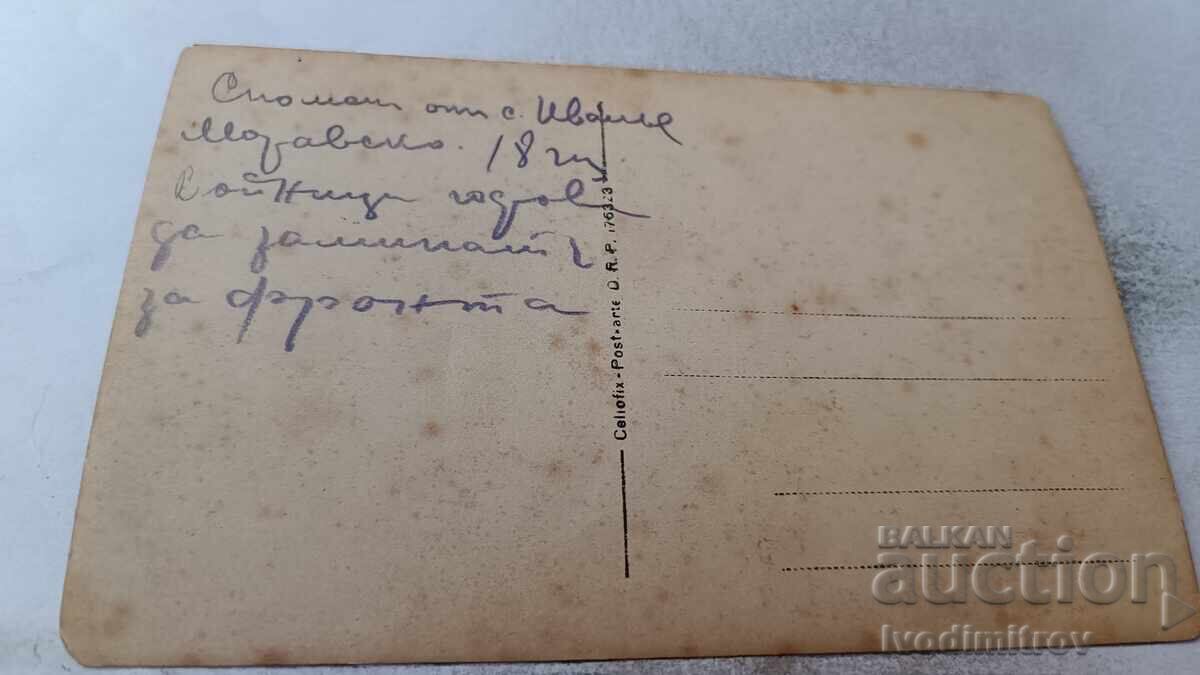 Спомен от с.
Моравско. 18
войници готови
да заминатъ
за фронта
Celiofix-Postkarte D.R.P. 176323
BALKAN
auction
Ivodimitrov